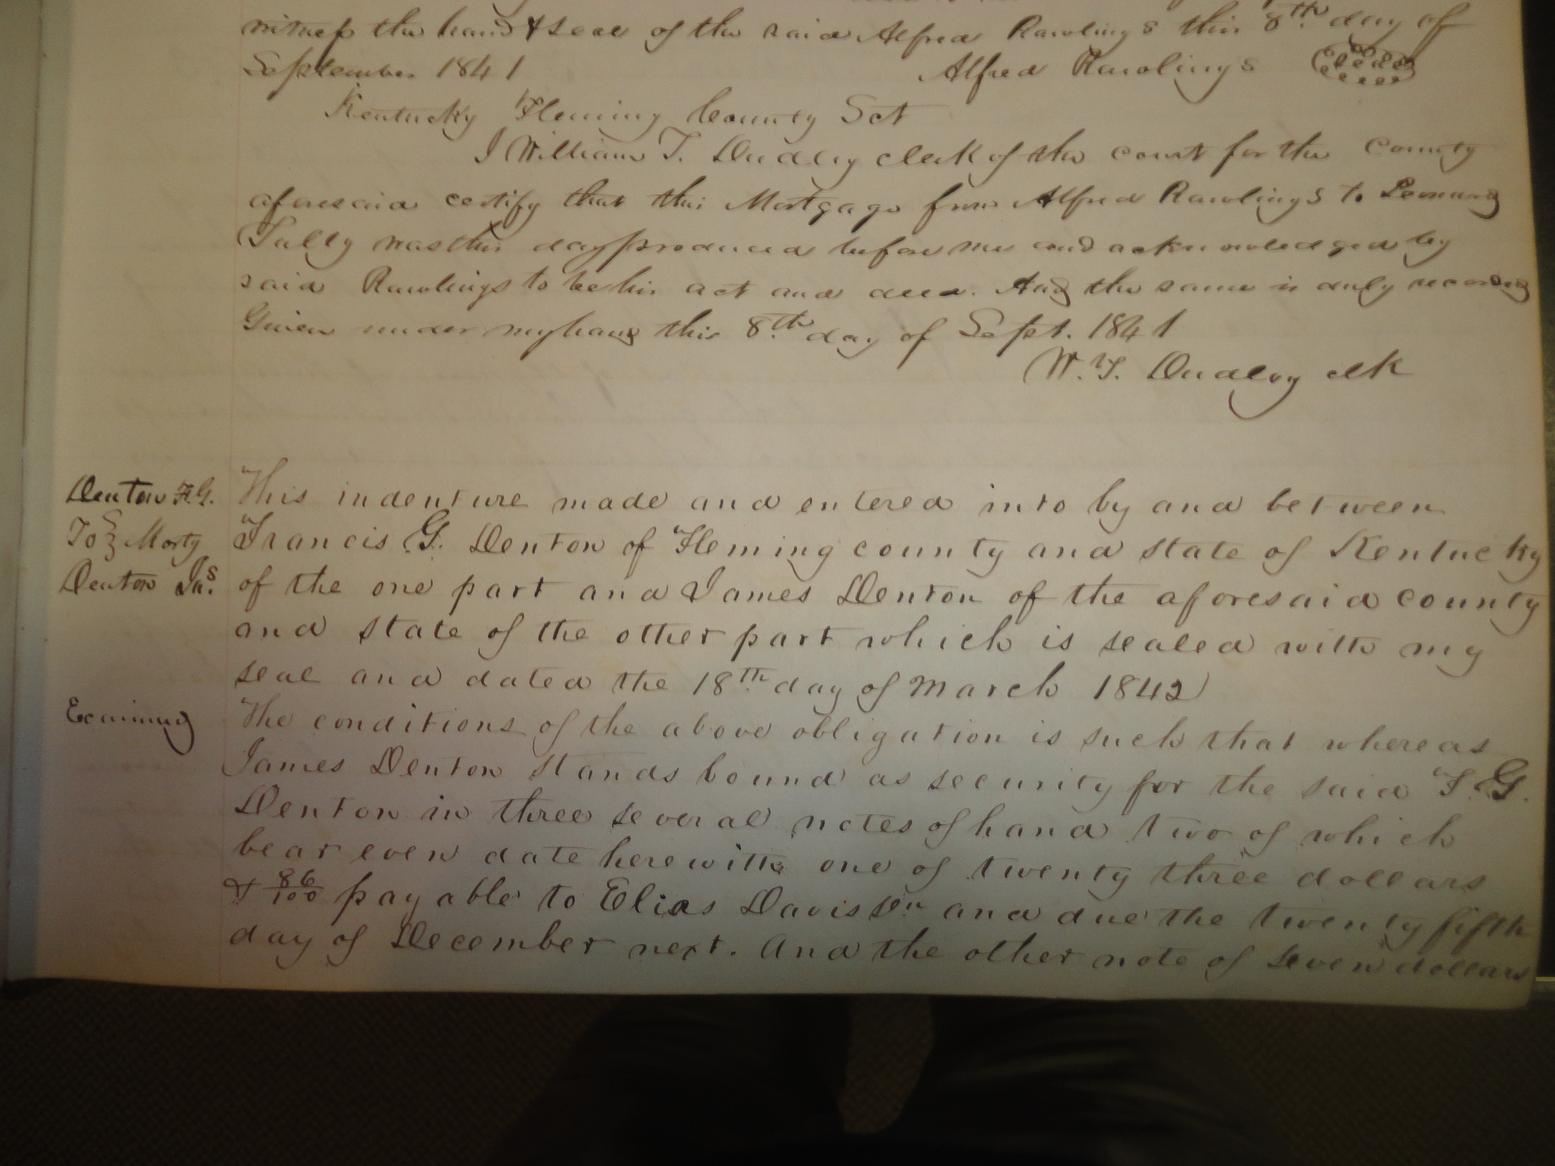 witness the hand & seal of the said Alfred Rawlings this 8th day of
September 1841 Alfred Rawlings
Kentucky Fleming County Sct
I William T. Dudley clerk of the court for the County
aforesaid certify that this Mortgage from Alfred Rawlings to Leonard
Tully was this day produced before me and acknowledged by
said Rawlings to be his act and deed. And the same is duly recorded
Given under my hand this 8th day of Sept. 1841
W. T. Dudley clk
Denton F.G.
To Mortg
Denton Jas.
This indenture made and entered into by and between
Francis G. Denton of Fleming county and state of Kentucky
of the one part and James Denton of the aforesaid county
and state of the other part which is sealed with my
seal and dated the 18th day of March 1842
Examined
The conditions of the above obligation is such that whereas
James Denton stands bound as security for the said F. G.
Denton in three several notes of hand two of which
bear even date herewith one of twenty three dollars
& 86/100 payable to Elias Davisson and due the twenty fifth
day of December next. And the other note of seven dollars